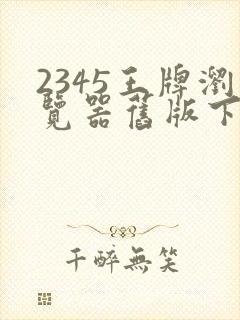 2345王牌瀏
覽器舊版下
千醉無笑